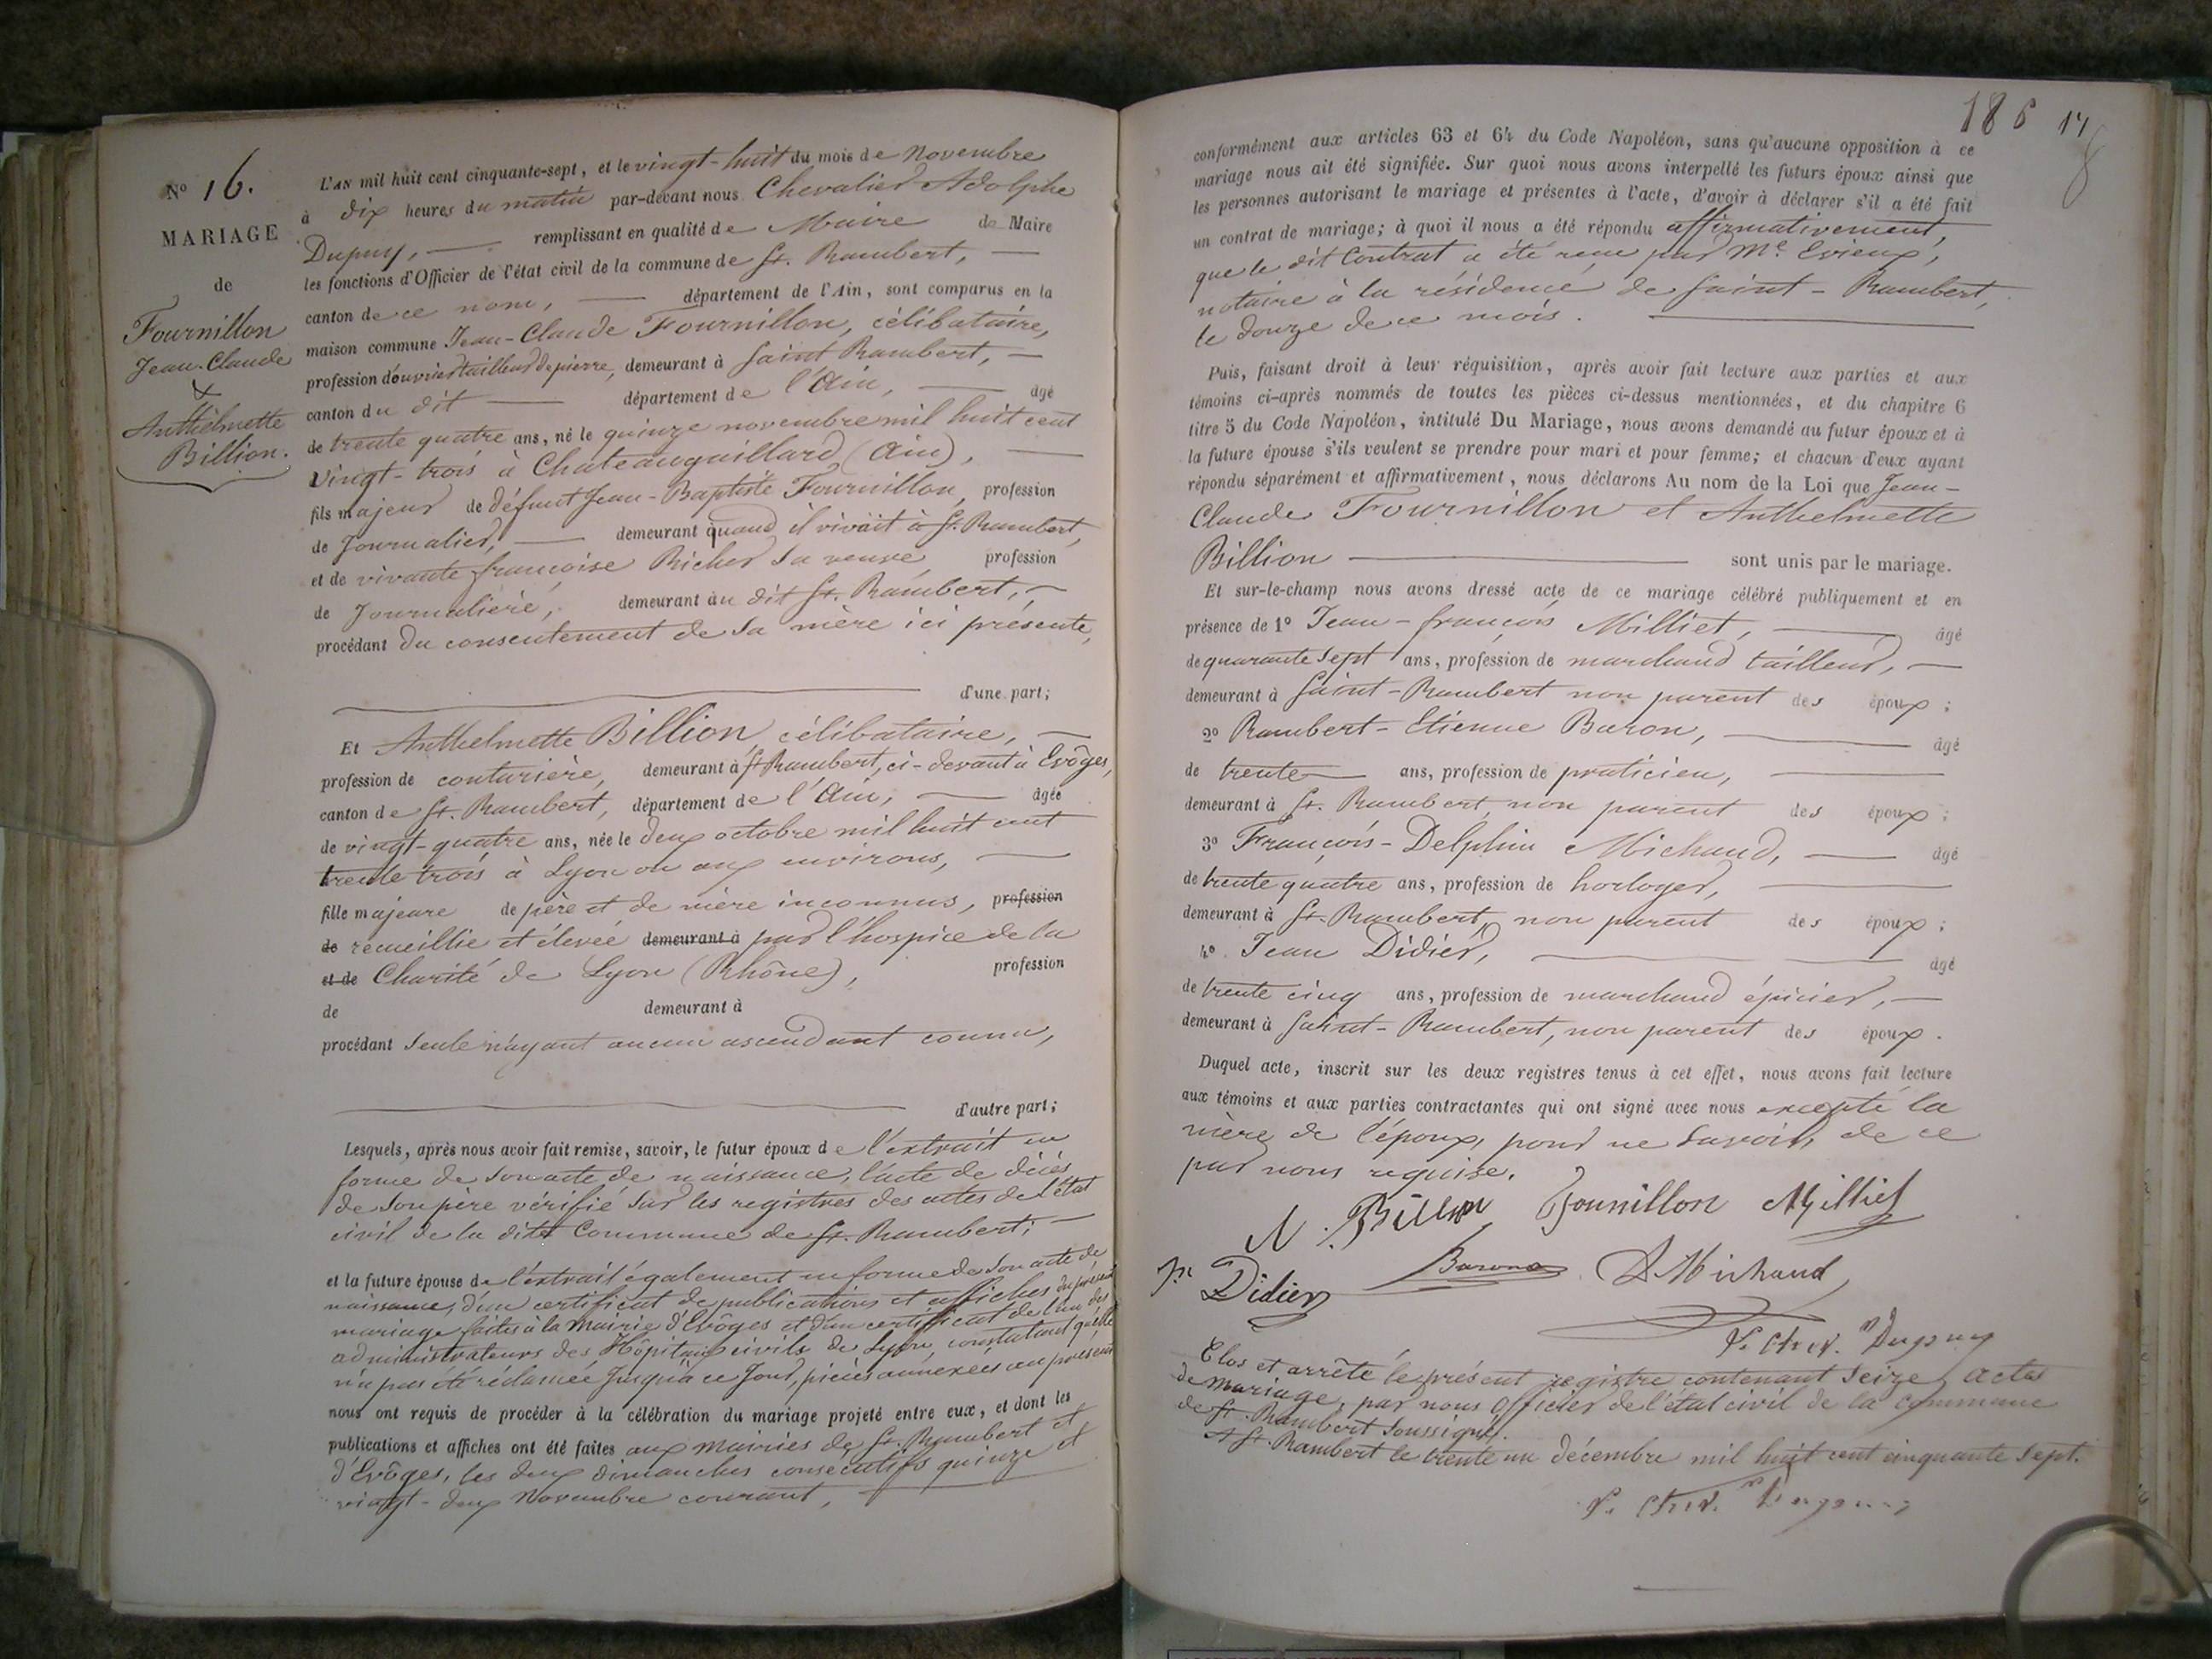 N° 16.
MARIAGE
de
Fournillon
Jean-Claude
&
Anthelmette
Billion.
L'AN mil huit cent cinquante-sept, et le vingt-huit du mois de Novembre
à dix heures du matin par-devant nous Chevalier Adolphe
Dupuy, remplissant en qualité de Maire de Maire
les fonctions d'Officier de l'état civil de la commune de St. Rambert,
canton de ce nom, département de l'Ain, sont comparus en la
maison commune Jean-Claude Fournillon, célibataire,
profession d'ouvrier tailleur de pierre, demeurant à Saint Rambert,
canton du dit département de l'Ain, âgé
de trente quatre ans, né le quinze novembre mil huit cent
vingt-trois à Chateaugaillard (Ain),
fils majeur de défunt Jean-Baptiste Fournillon, profession
de Journalier, demeurant quand il vivait à St. Rambert,
et de vivante françoise Richer sa veuve, profession
de Journalière, demeurant au dit St. Rambert,
procédant du consentement de sa mère ici présente,
d'une part;
Et Anthelmette Billion célibataire,
profession de couturière, demeurant à St Rambert, ci-devant à Evôges,
canton de St. Rambert, département de l'Ain, âgée
de vingt-quatre ans, née le deux octobre mil huit cent
trente trois à Lyon ou aux environs,
fille majeure de père et de mère inconnus, profession
de recueillie et élevée demeurant à par l'hospice de la
et de Charité de Lyon (Rhône), profession
de demeurant à
procédant seule n'ayant aucun ascendant connu,
d'autre part;
Lesquels, après nous avoir fait remise, savoir, le futur époux de l'extrait en
forme de son acte de naissance, l'acte de décès
de son père vérifié sur les registres des actes de l'état
civil de la dite Commune de St. Rambert;
et la future épouse de l'extrait également en forme de son acte de
naissance, d'un certificat de publications et affiches du présent
mariage faites à la Mairie d'Evôges et d'un certificat de l'un des
administrateurs des Hôpitaux civils de Lyon, constatant qu'elle
n'a pas été réclamée jusqu'à ce jour, pièces annexées au présent
nous ont requis de procéder à la célébration du mariage projeté entre eux, et dont les
publications et affiches ont été faites aux mairies de St. Rambert et
d'Evôges, les deux dimanches consécutifs quinze et
vingt-deux Novembre courant,
186 17
8
conformément aux articles 63 et 64 du Code Napoléon, sans qu'aucune opposition à ce
mariage nous ait été signifiée. Sur quoi nous avons interpellé les futurs époux ainsi que
les personnes autorisant le mariage et présentes à l'acte, d'avoir à déclarer s'il a été fait
un contrat de mariage; à quoi il nous a été répondu affirmativement,
que le dit Contrat a été reçu par Me. Evieux,
notaire à la résidence de Saint-Rambert,
le douze de ce mois.
Puis, faisant droit à leur réquisition, après avoir fait lecture aux parties et aux
témoins ci-après nommés de toutes les pièces ci-dessus mentionnées, et du chapitre 6
titre 5 du Code Napoléon, intitulé Du Mariage, nous avons demandé au futur époux et à
la future épouse s'ils veulent se prendre pour mari et pour femme; et chacun d'eux ayant
répondu séparément et affirmativement, nous déclarons Au nom de la Loi que Jean-
Claude Fournillon et Anthelmette
Billion sont unis par le mariage.
Et sur-le-champ nous avons dressé acte de ce mariage célébré publiquement et en
présence de 1° Jean-françois Milliet, âgé
de quarante sept ans, profession de marchand tailleur,
demeurant à Saint-Rambert non parent des époux;
2° Rambert-Etienne Baron, âgé
de trente ans, profession de praticien,
demeurant à St. Rambert, non parent des époux;
3° François-Delphin Michaud, âgé
de trente quatre ans, profession de horloger,
demeurant à St. Rambert, non parent des époux;
4° Jean Didier, âgé
de trente cinq ans, profession de marchand épicier,
demeurant à Saint-Rambert, non parent des époux.
Duquel acte, inscrit sur les deux registres tenus à cet effet, nous avons fait lecture
aux témoins et aux parties contractantes qui ont signé avec nous excepté la
mère de l'époux, pour ne savoir, de ce
par nous requise.
N. Billion Fournillon Milliet
Didier Baron D Michaud
Chev. Dupuy
Clos et arrêté le présent registre contenant seize actes
de mariage, par nous Officier de l'état civil de la commune
de St. Rambert soussigné.
A St. Rambert le trente un décembre mil huit cent cinquante sept.
Chev. Dupuy